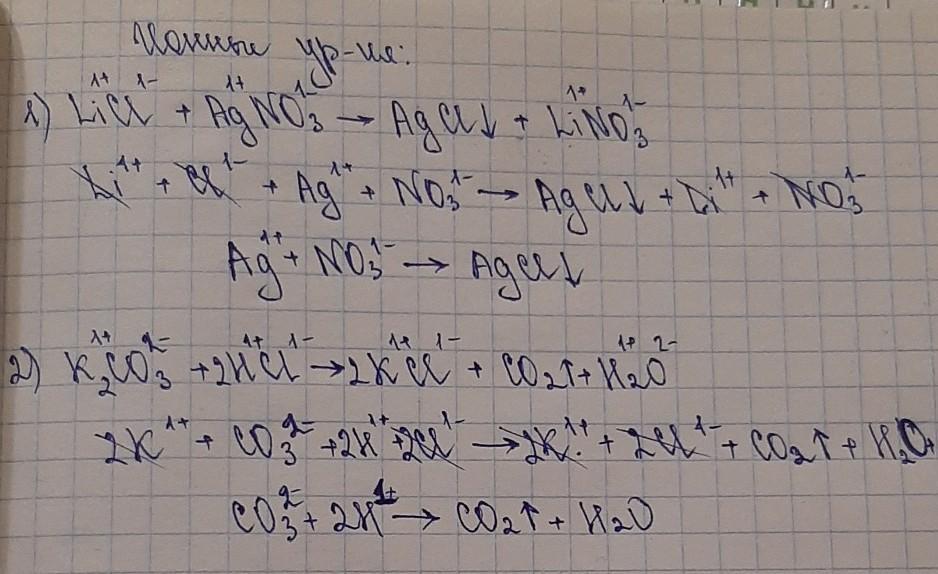 Ионные ур-ия:
1) Li¹⁺Cl¹⁻ + Ag¹⁺NO₃¹⁻ → AgCl↓ + Li¹⁺NO₃¹⁻
Li¹⁺ + Cl¹⁻ + Ag¹⁺ + NO₃¹⁻ → AgCl↓ + Li¹⁺ + NO₃¹⁻
Ag¹⁺ + NO₃¹⁻ → AgCl↓
2) K₂¹⁺CO₃²⁻ + 2H¹⁺Cl¹⁻ → 2K¹⁺Cl¹⁻ + CO₂↑ + H₂¹⁺O²⁻
2K¹⁺ + CO₃²⁻ + 2H¹⁺ + 2Cl¹⁻ → 2K¹⁺ + 2Cl¹⁻ + CO₂↑ + H₂O
CO₃²⁻ + 2H¹⁺ → CO₂↑ + H₂O